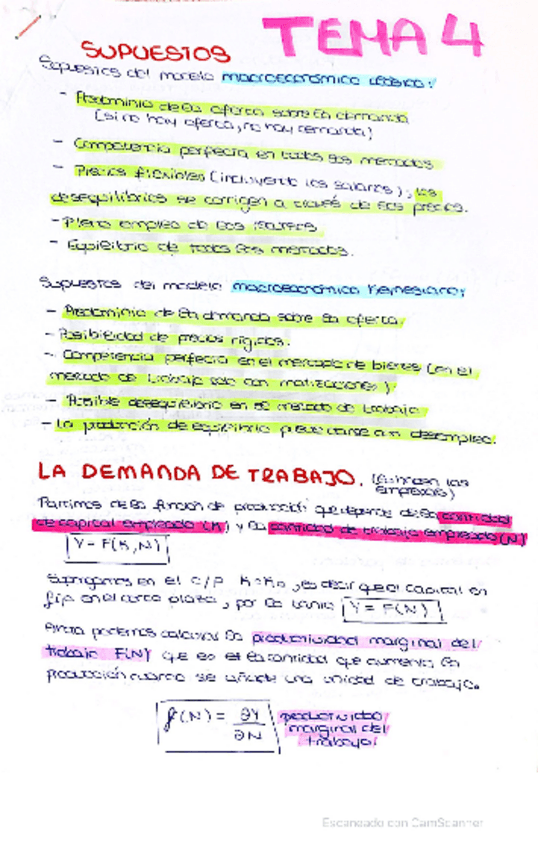 TEMA 4
SUPUESTOS
Supuestos del modelo macroeconómico clásico:
- Predominio de la oferta sobre la demanda
(si no hay oferta, no hay demanda)
- Competencia perfecta en todos los mercados
- Precios flexibles (incluyendo los salarios), los
desequilibrios se corrigen a través de los precios.
- Pleno empleo de los recursos
- Equilibrio de todos los mercados.
Supuestos del modelo macroeconómico Keynesiano:
- Predominio de la demanda sobre la oferta
- Posibilidad de precios rígidos.
- Competencia perfecta en el mercado de bienes (en el
mercado de trabajo solo con matizaciones)
- Posible desequilibrio en el mercado de trabajo
- La producción de equilibrio puede darse con desempleo.
LA DEMANDA DE TRABAJO. (la hacen las
empresas)
Partimos de la función de producción que depende de la cantidad
de capital empleado (K) y la cantidad de trabajo empleado (N)
Y = F(K,N)
Supongamos en el c/p K=K₀, es decir que el capital en
fijo en el corto plazo, por lo tanto Y = F(N)
Ahora podemos calcular la productividad marginal del
trabajo F(N) que es el la cantidad que aumenta la
producción cuando se añade una unidad de trabajo.
f(N) = ∂Y/∂N productividad
marginal del
trabajo
Escaneado con CamScanner